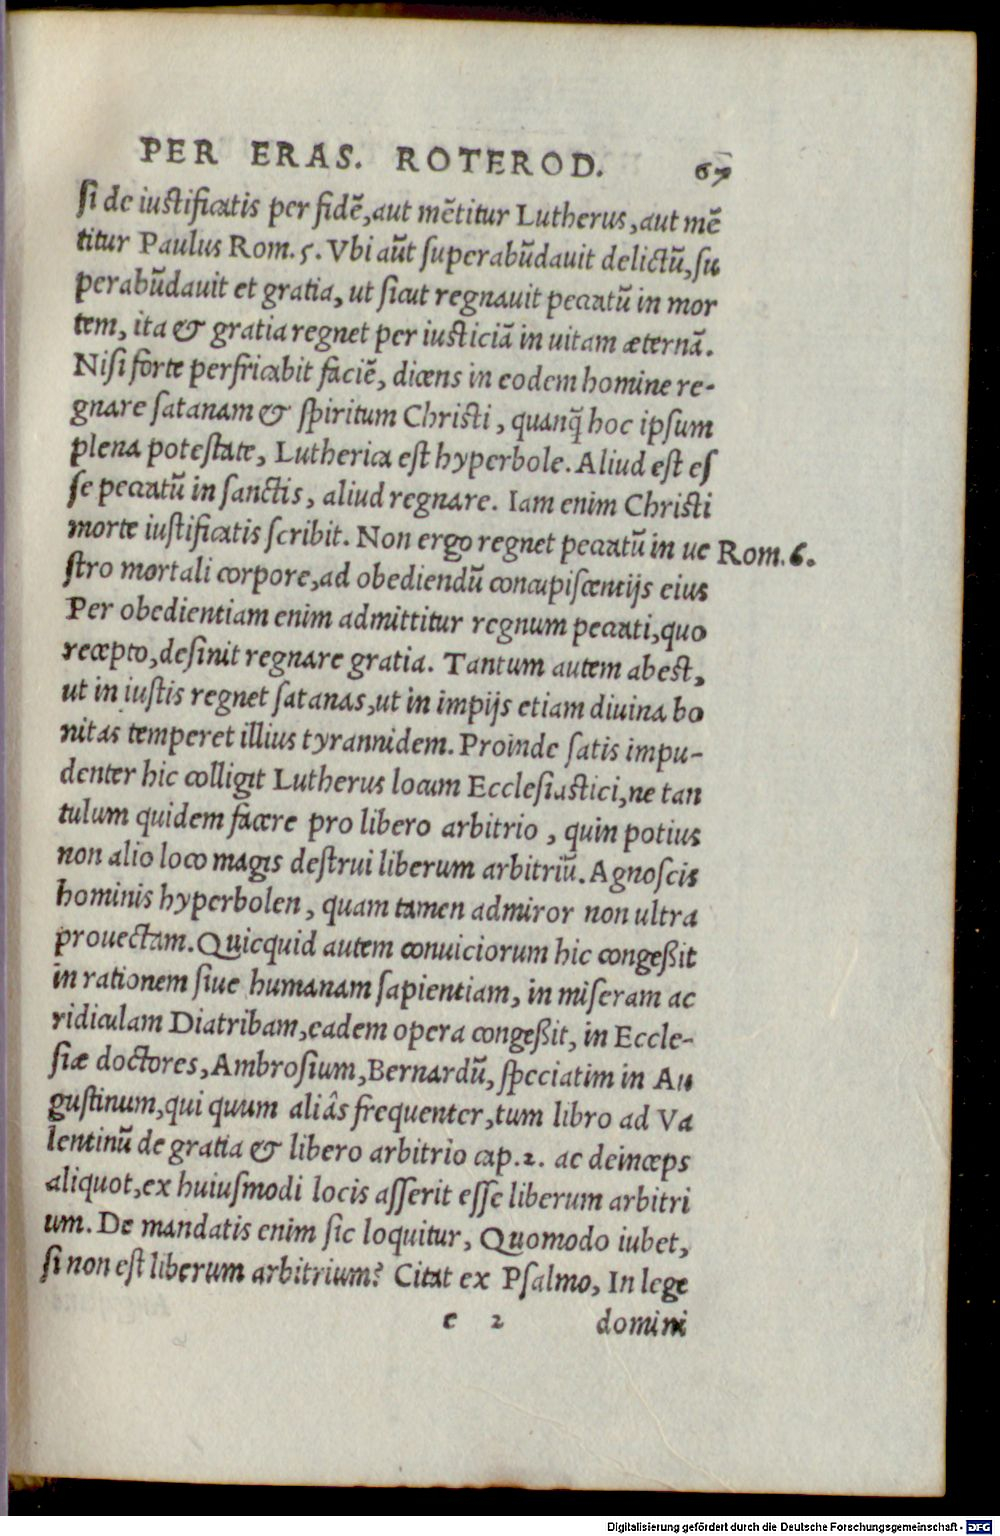 PER ERAS. ROTEROD. 67
ſi de iuſtificatis per fidẽ, aut mẽtitur Lutherus, aut mẽ
titur Paulus Rom. 5. Vbi aũt ſuperabũdauit delictũ, ſu
perabũdauit et gratia, ut ſicut regnauit peccatũ in mor
tem, ita & gratia regnet per iuſticiã in uitam æternã.
Niſi forte perfricabit faciẽ, dicens in eodem homine re-
gnare ſatanam & ſpiritum Chriſti, quanq̃ hoc ipſum
plena poteſtate, Lutherica eſt hyperbole. Aliud eſt eſ
ſe peccatũ in ſanctis, aliud regnare. Iam enim Chriſti
morte iuſtificatis ſcribit. Non ergo regnet peccatũ in ue Rom. 6.
ſtro mortali corpore, ad obediendũ concupiſcentijs eius
Per obedientiam enim admittitur regnum peccati, quo
recepto, deſinit regnare gratia. Tantum autem abeſt,
ut in iuſtis regnet ſatanas, ut in impijs etiam diuina bo
nitas temperet illius tyrannidem. Proinde ſatis impu-
denter hic colligit Lutherus locum Eccleſiaſtici, ne tan
tulum quidem facere pro libero arbitrio, quin potius
non alio loco magis deſtrui liberum arbitriũ. Agnoſcis
hominis hyperbolen, quam tamen admiror non ultra
prouectam. Quicquid autem conuiciorum hic congeßit
in rationem ſiue humanam ſapientiam, in miſeram ac
ridiculam Diatribam, eadem opera congeßit, in Eccle-
ſiæ doctores, Ambroſium, Bernardũ, ſpeciatim in Au
guſtinum, qui quum aliâs frequenter, tum libro ad Va
lentinũ de gratia & libero arbitrio cap. 2. ac deinceps
aliquot, ex huiuſmodi locis aſſerit eſſe liberum arbitri
um. De mandatis enim ſic loquitur, Quomodo iubet,
ſi non eſt liberum arbitrium? Citat ex Pſalmo, In lege
e 2 domini
Digitalisierung gefördert durch die Deutsche Forschungsgemeinschaft - DFG